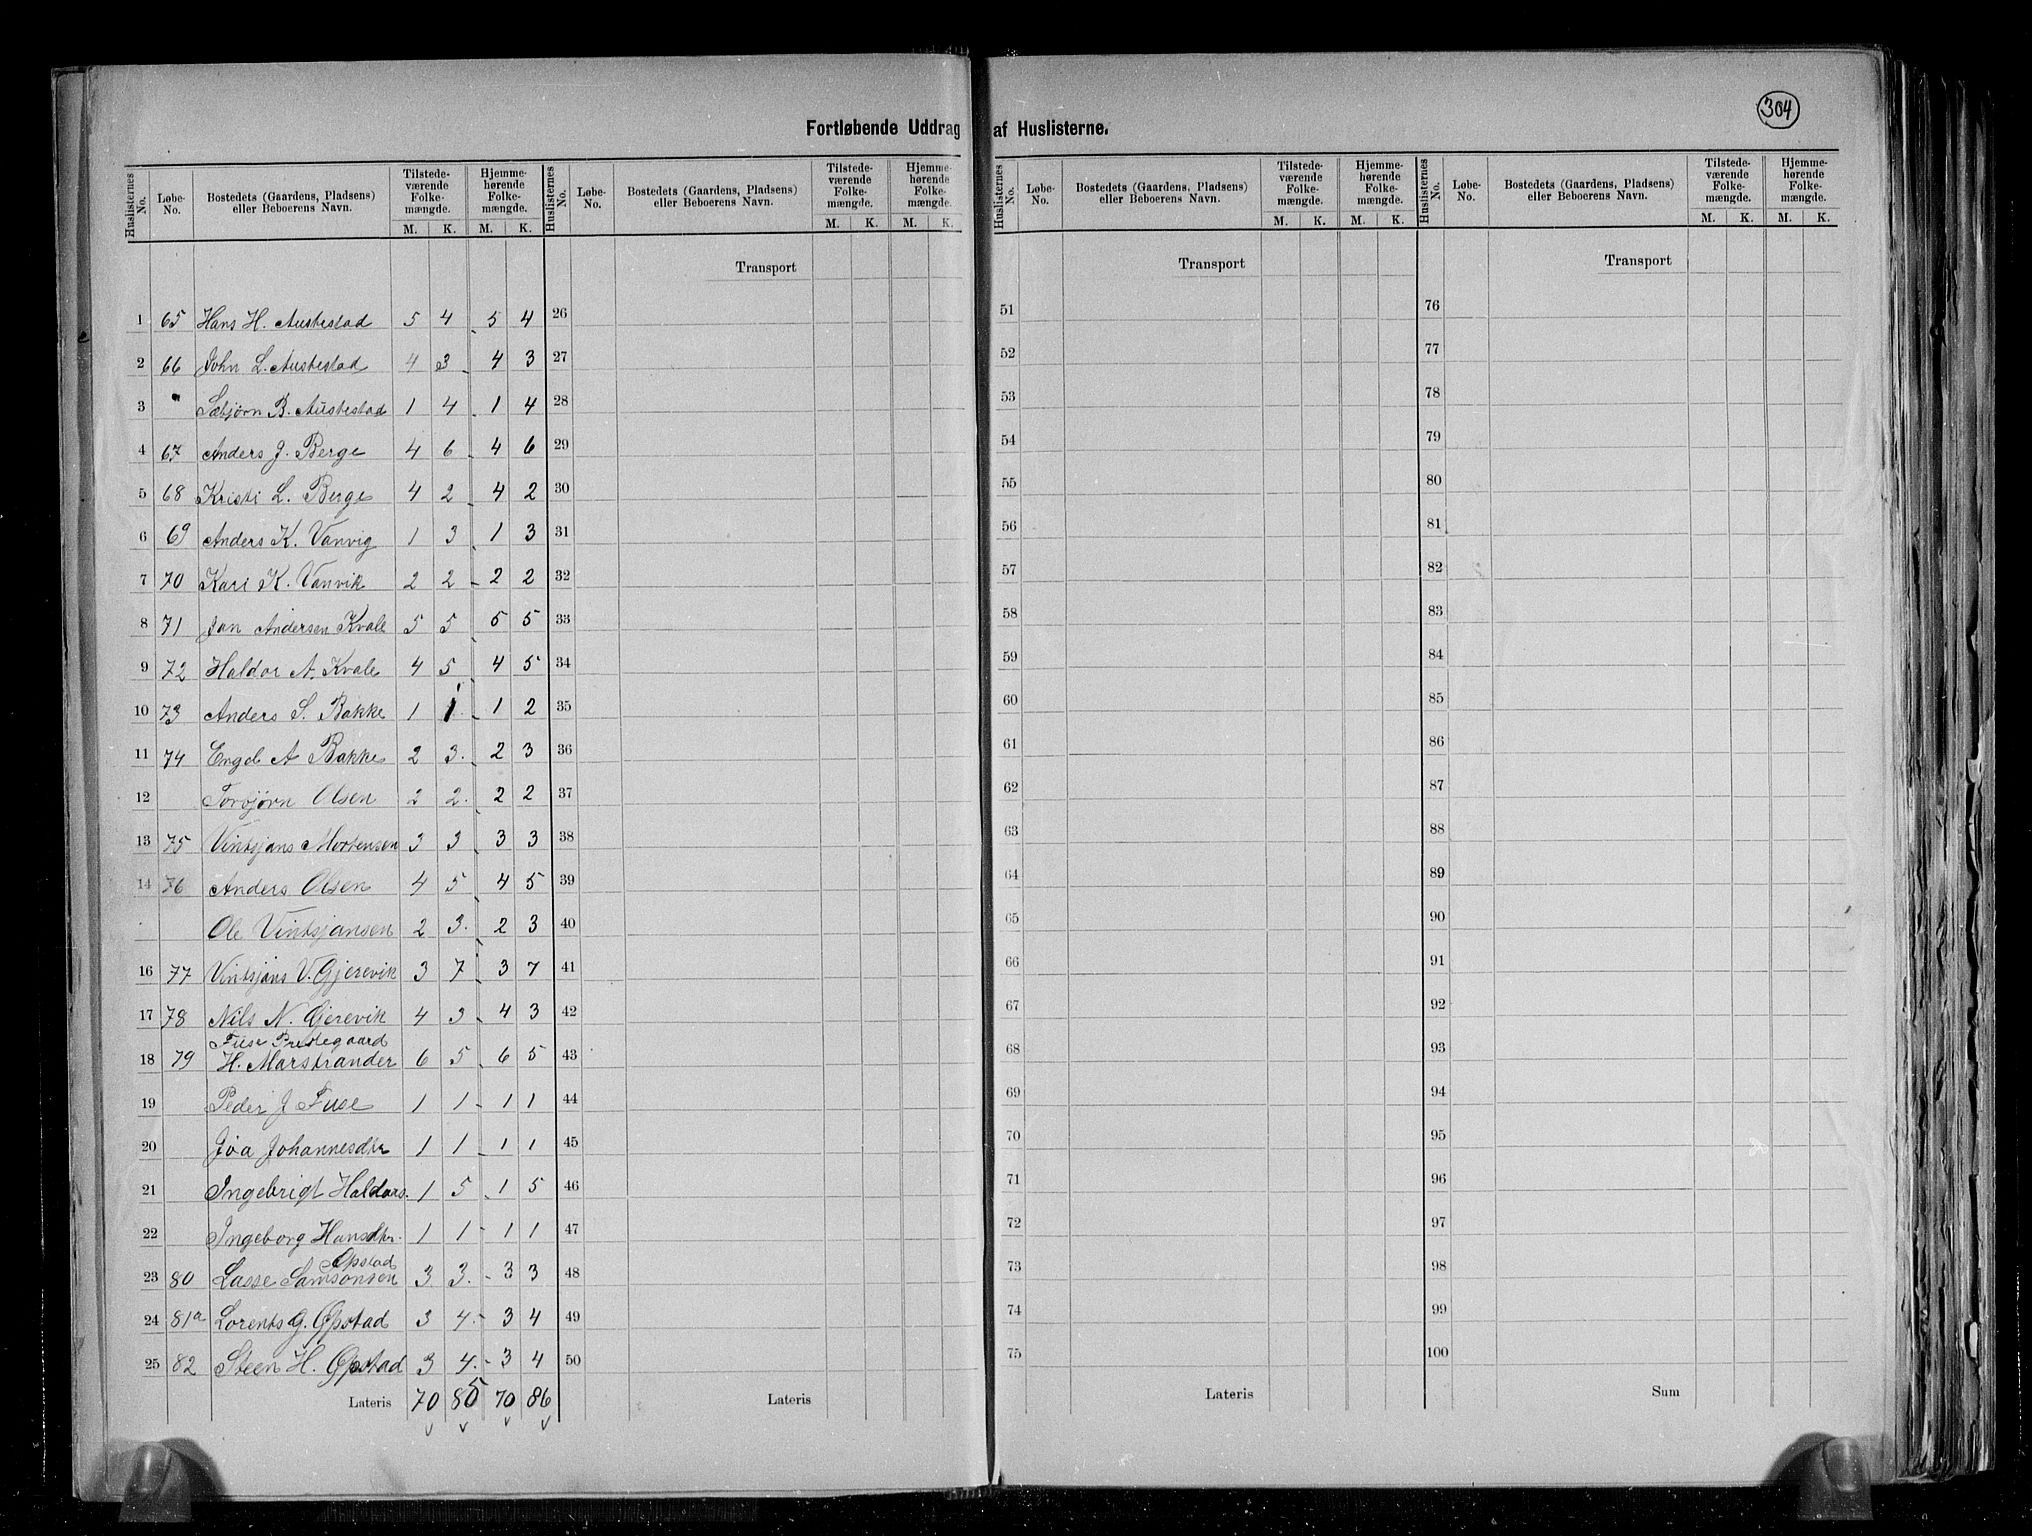 304
Fortløbende Uddrag af Huslisterne.
Huslisternes No. Løbe-No. Bostedets (Gaardens, Pladsens) eller Beboerens Navn. Tilstedeværende Folkemængde. M. K. Hjemmehørende Folkemængde. M. K.
Huslisternes No. Løbe-No. Bostedets (Gaardens, Pladsens) eller Beboerens Navn. Tilstedeværende Folkemængde. M. K. Hjemmehørende Folkemængde. M. K.
Huslisternes No. Løbe-No. Bostedets (Gaardens, Pladsens) eller Beboerens Navn. Tilstedeværende Folkemængde. M. K. Hjemmehørende Folkemængde. M. K.
Huslisternes No. Løbe-No. Bostedets (Gaardens, Pladsens) eller Beboerens Navn. Tilstedeværende Folkemængde. M. K. Hjemmehørende Folkemængde. M. K.
Transport Transport Transport
1 65 Hans H. Austestad 5 4 5 4 26 51 76
2 66 John L. Austestad 4 3 4 3 27 52 77
3 " Sæbjørn B. Austestad 1 4 1 4 28 53 78
4 67 Anders J. Berge 4 6 4 6 29 54 79
5 68 Kristi L. Berge 4 2 4 2 30 55 80
6 69 Anders K. Vanvig 1 3 1 3 31 56 81
7 70 Kari K. Vanvik 2 2 2 2 32 57 82
8 71 Jan Andersen Kvale 5 5 5 5 33 58 83
9 72 Haldor A. Kvale 4 5 4 5 34 59 84
10 73 Anders S. Bakke 1 1 1 2 35 60 85
11 74 Engel A Bakke 2 3 2 3 36 61 86
12 Torbjørn Olsen 2 2 2 2 37 62 87
13 75 Vintsjans Mortensen 3 3 3 3 38 63 88
14 76 Anders Olsen 4 5 4 5 39 64 89
Ole Vintsjansen 2 3 2 3 40 65 90
16 77 Vintsjans V. Gjerevik 3 7 3 7 41 66 91
17 78 Nils N. Gjerevik 4 3 4 3 42 67 92
Fuse Prestegaard
18 79 H. Marstrander 6 5 6 5 43 68 93
19 Peder J Fuse 1 1 1 1 44 69 94
20 Joa Johannesdtr 1 1 1 1 45 70 95
21 Ingebrigt Haldors. 1 5 1 5 46 71 96
22 Ingeborg Hansdtr. 1 1 1 1 47 72 97
Øpstad
23 80 Lasse Samsonsen 3 3 3 3 48 73 98
24 81a Lorents G. Øpstad 3 4 3 4 49 74 99
25 82 Steen H. Øpstad 3 4 3 4 50 75 100
Lateris 70 85 70 86 Lateris Lateris Sum